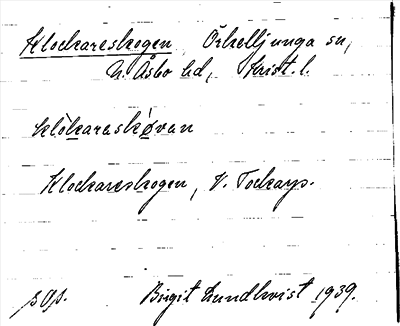 Klockareskogen, Örkelljunga sn,
N. Åsbo hd, Krist. l.
klǒkaraskǿvan
Klockareskogen, V. Tockarp.
Birgit Lundkvist 1939.